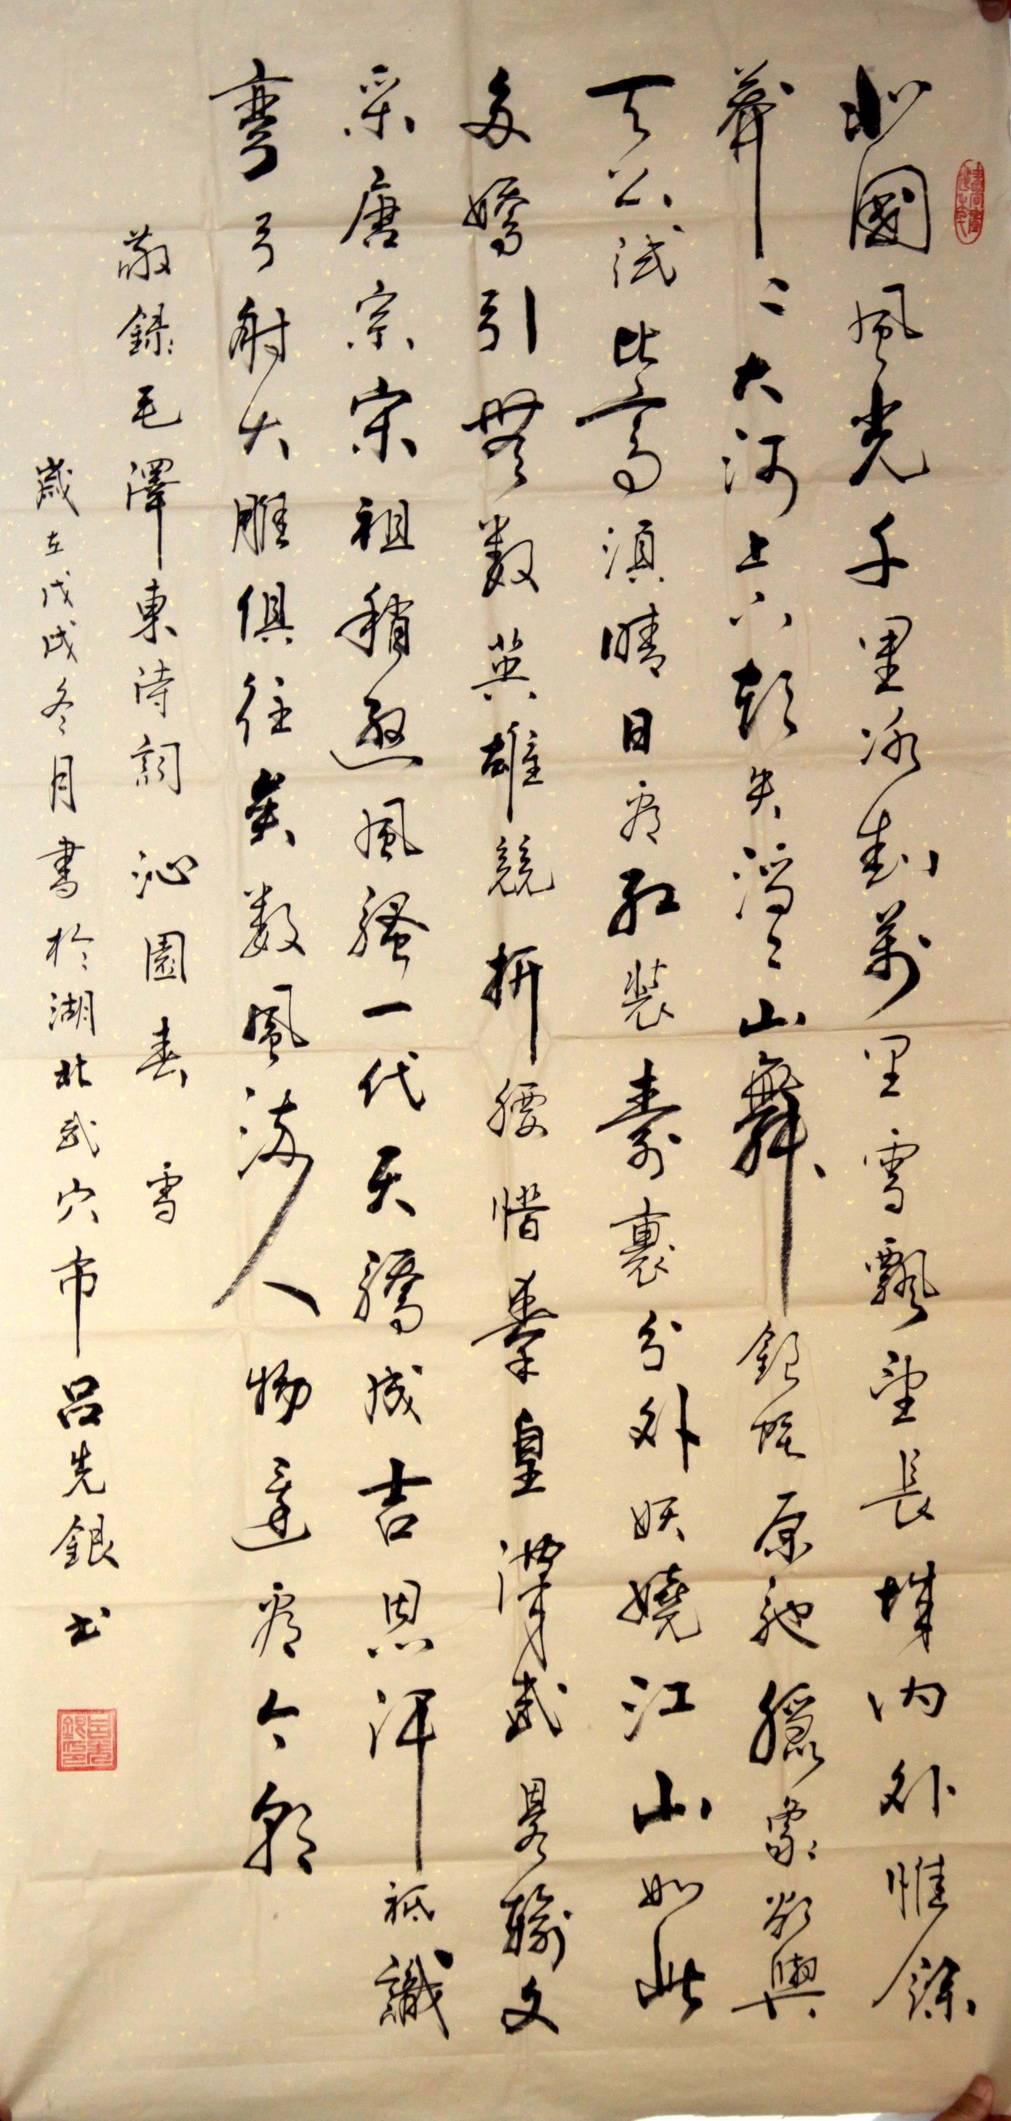 北國風光千里冰封萬里雪飄望長城内外惟餘
莽〻大河上下頓失滔〻山舞銀蛇原馳臘象欲與
天公試比高須晴日看紅裝素裹分外妖嬈江山如此
多嬌引無数英雄競折腰惜秦皇漢武畧輸文
采唐宗宋祖稍遜風騷一代天驕成吉思汗祗識
彎弓射大雕俱往矣数風流人物還看今朝
敬録毛澤東詩詞 沁園春 雪
歲在戊戌冬月書於湖北武穴市吕先銀书